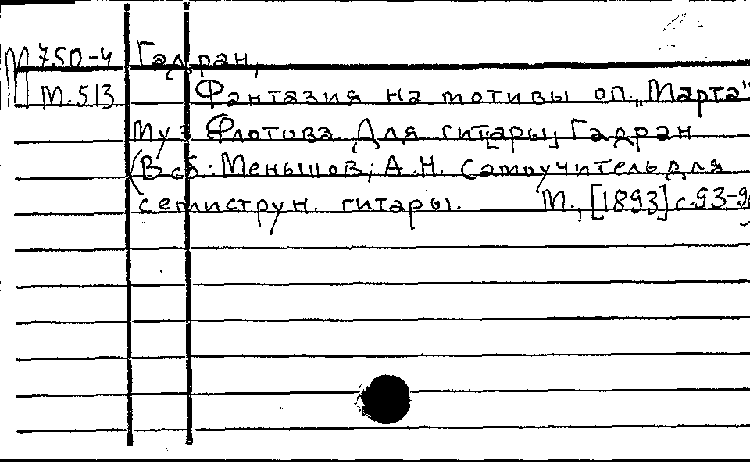 М 750-4 Гадран,
М.513 Фантазия на мотивы оп. „Марта"
муз Флотова Для гитары Гадран
(В сб: Меньшов, А.Н. Самоучитель для
семиструн. гитары. М., [1893] с.93-9